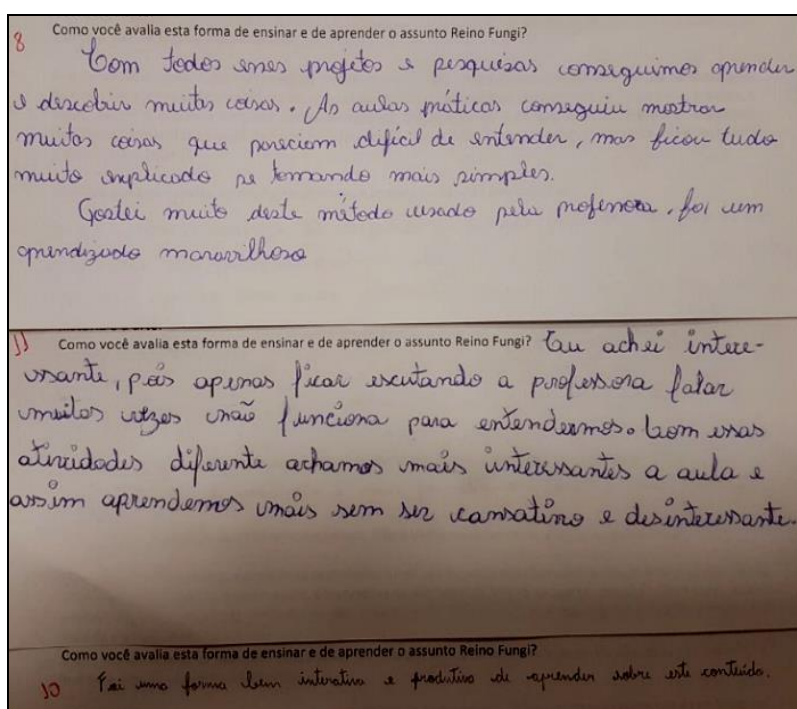 8 Como você avalia esta forma de ensinar e de aprender o assunto Reino Fungi?
Com todos esses projetos e pesquisas conseguimos aprender
e descobrir muitas coisas. As aulas práticas conseguiu mostrar
muitas coisas que pareciam difícil de entender, mas ficou tudo
muito explicado se tornando mais simples.
Gostei muito deste método usado pela professora, foi um
aprendizado maravilhoso
11 Como você avalia esta forma de ensinar e de aprender o assunto Reino Fungi? Eu achei intere-
ssante, pois apenas ficar escutando a professora falar
muitas vezes não funciona para entendermos. Com essas
atividades diferente achamos mais interessantes a aula e
assim aprendemos mais sem ser cansativo e desinteressante.
Como você avalia esta forma de ensinar e de aprender o assunto Reino Fungi?
10 Foi uma forma bem interativa e produtiva de aprender sobre este conteúdo.